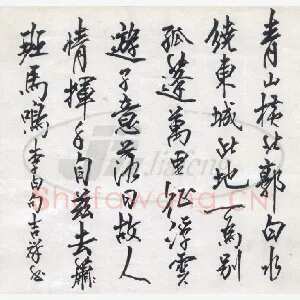 青山横北郭白水
绕東城此地一為别
孤蓬萬里征浮雲
遊子意落日故人
情揮手自兹去蕭
班馬鳴李白句吉祥書